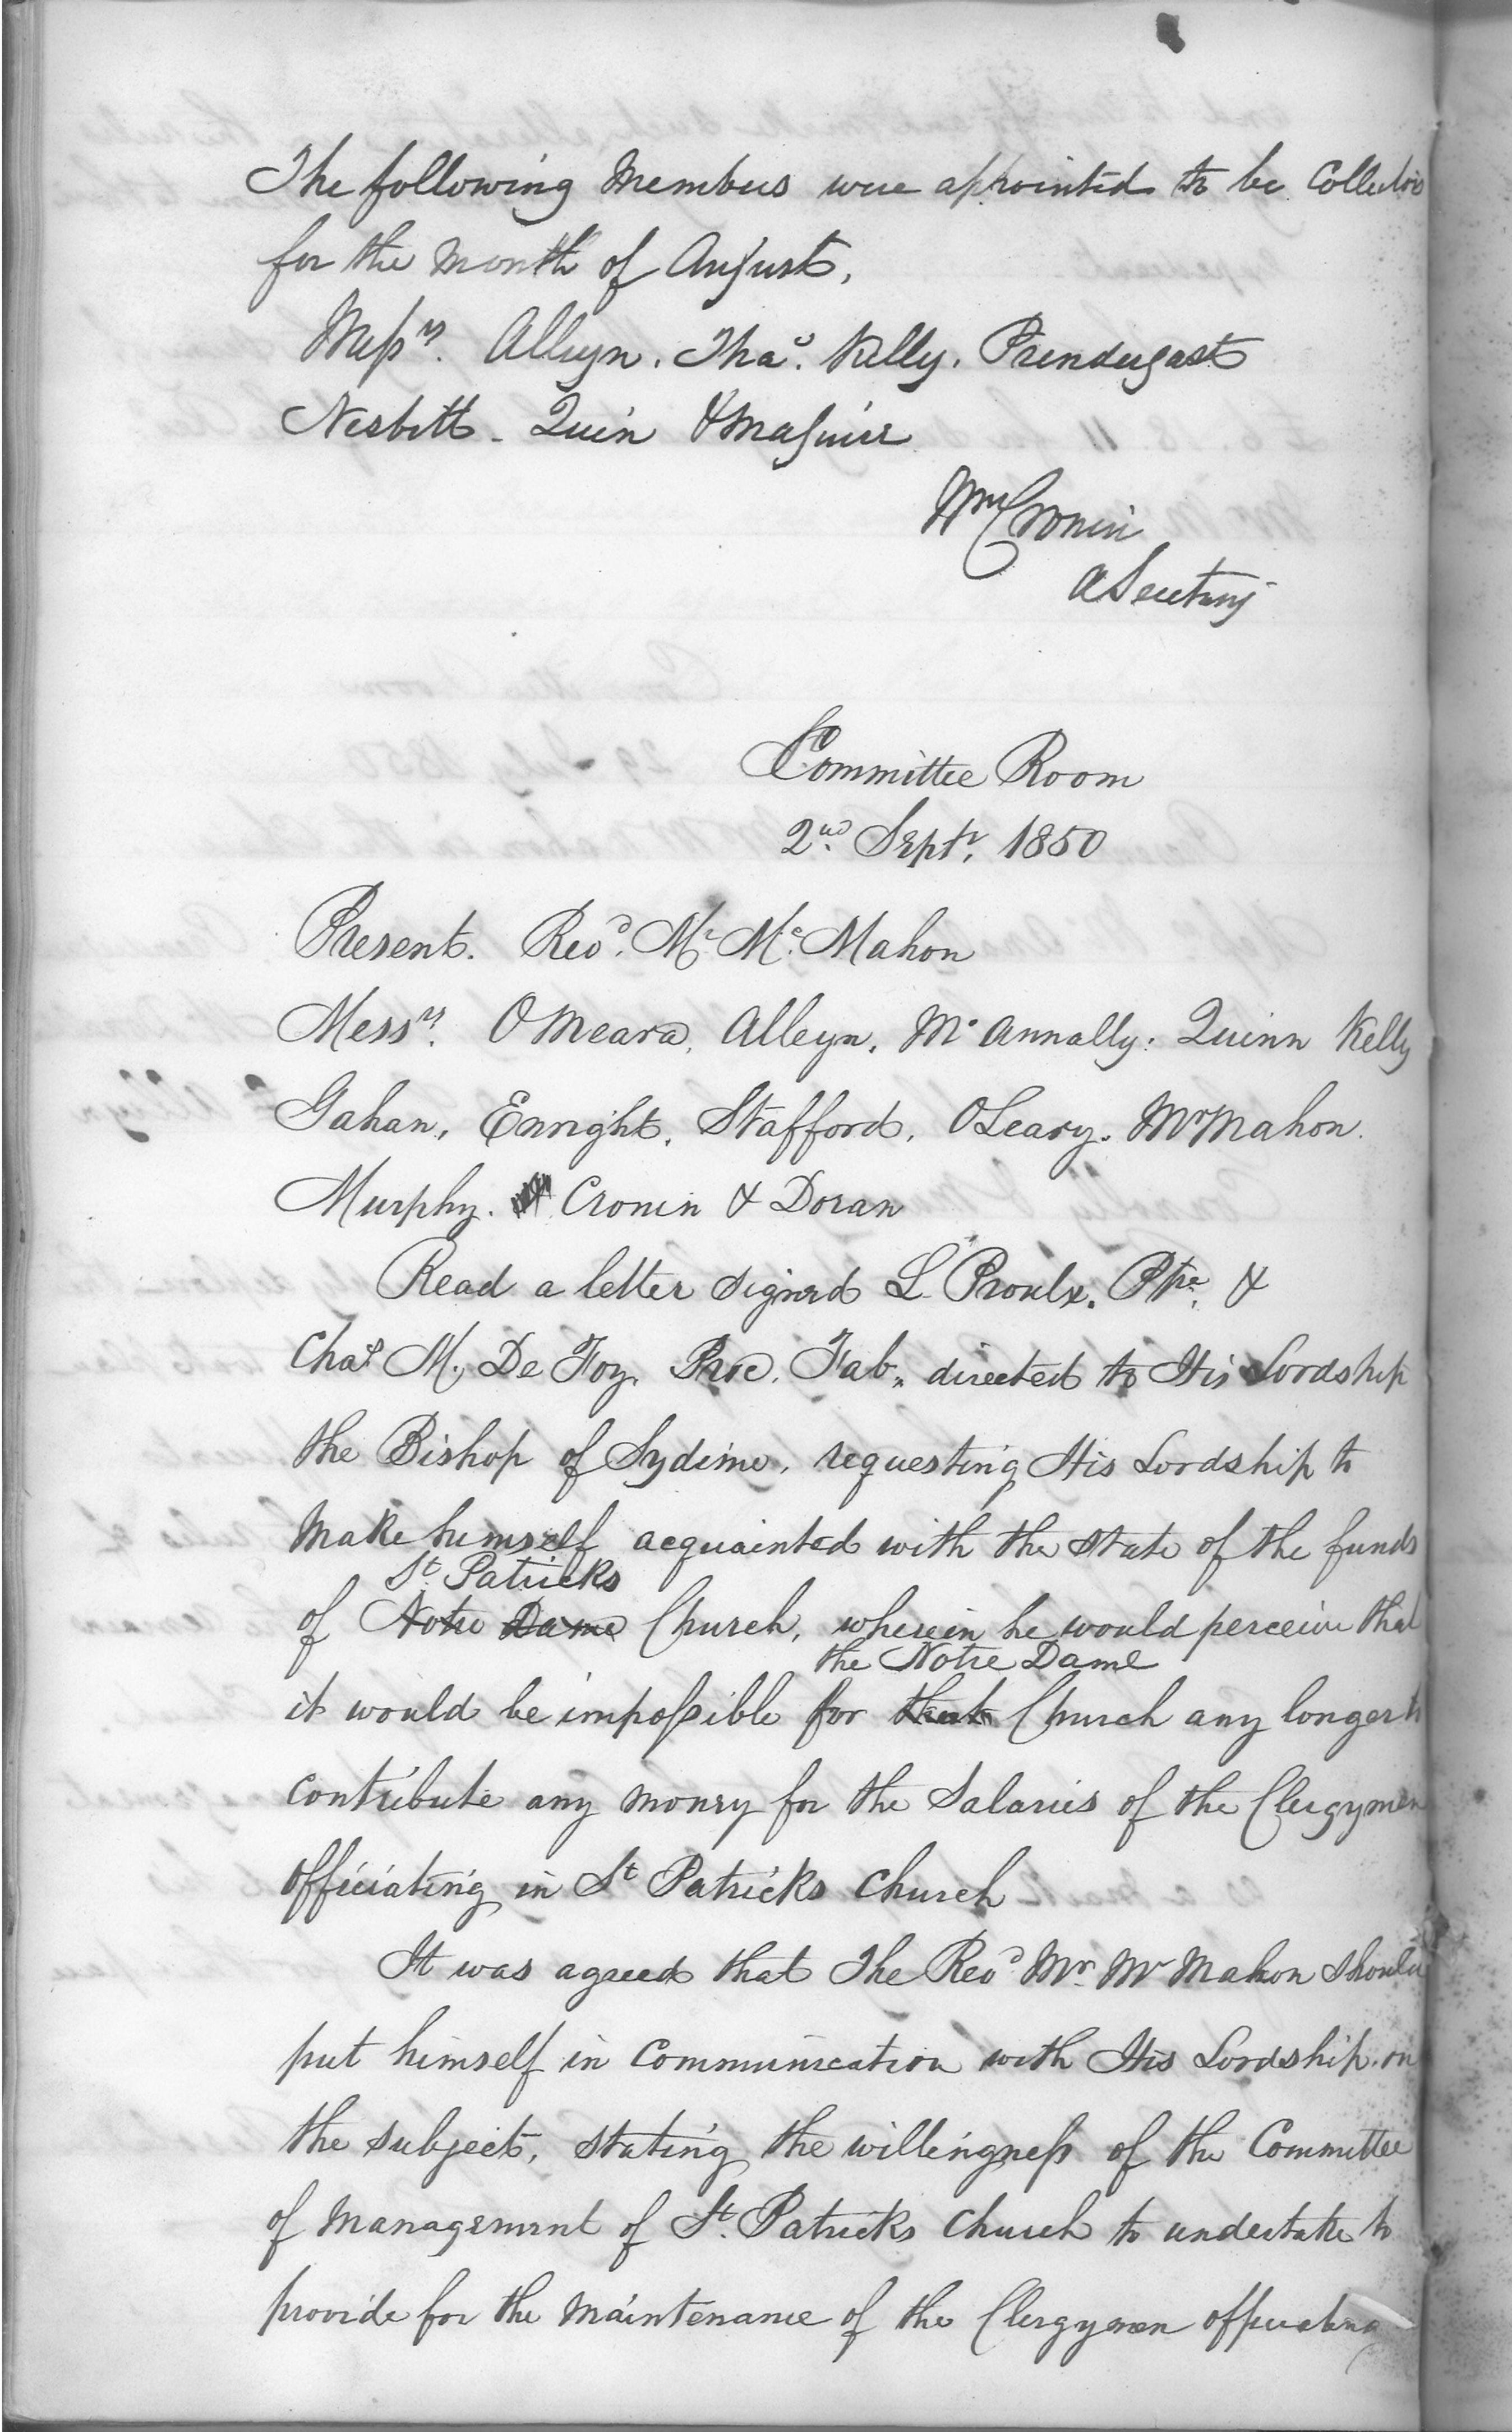 The following Members were appointed to be Collectors
for the Month of August,
Messrs. Alleyn. Thos. Kelly. Prendergast
Nesbitt - Quin & Maguire
Wm Cronin
A Secretary
Committee Room
2nd. Septr. 1850
Present. Revd. Mr. Mc. Mahon
Messrs. O Meara, Alleyn, Mc Annally. Quinn Kelly
Gahan, Enright, Stafford, O Leary. Mc Mahon.
Murphy. Cronin & Doran
Read a letter signed L. Proulx. Ptre. &
Chas M. De Foy. Proc. Fab. directed to His Lordship
the Bishop of Sydime, requesting His Lordship to
Make himself acquainted with the state of the funds
St. Patricks
of Notre Dame Church, wherein he would perceive that
the Notre Dame
it would be impossible for that Church any longer to
contribute any money for the Salaries of the Clergymen
officiating in St Patricks Church
It was agreed that The Revd Mr. Mc Mahon should
put himself in Communication with His Lordship on
the subject, stating the willingness of the Committee
of Management of St. Patricks Church to undertake to
provide for the Maintenance of the Clergymen officiating